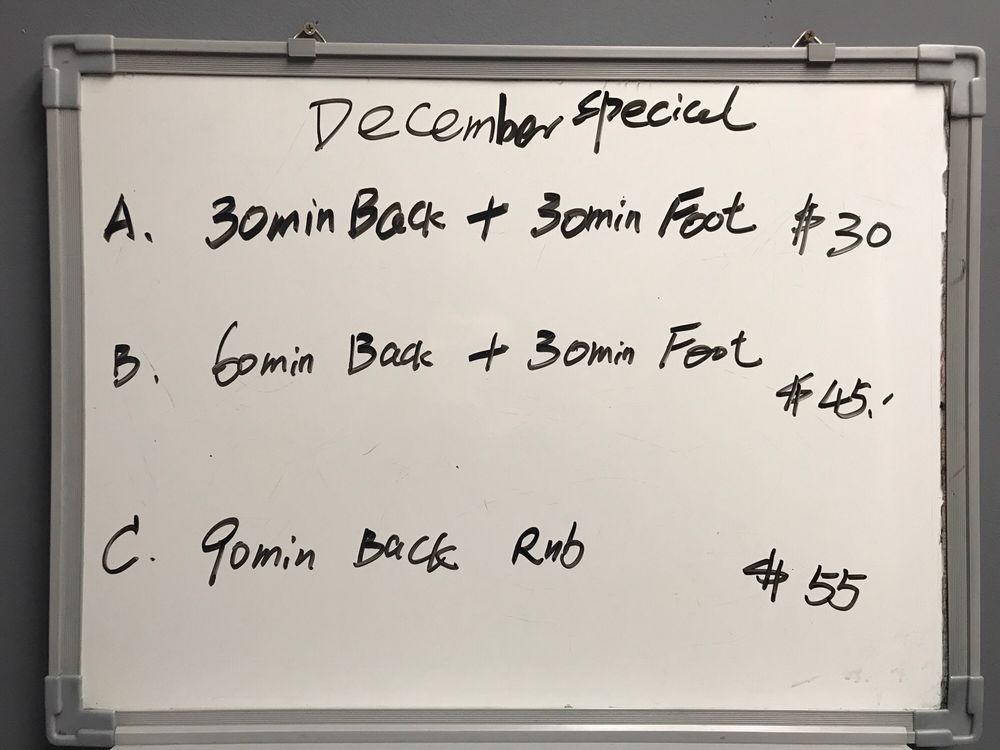 December special
A. 30min Back + 30min Foot $30
B. 60min Back + 30min Foot $45.
C. 90min Back Rub $55